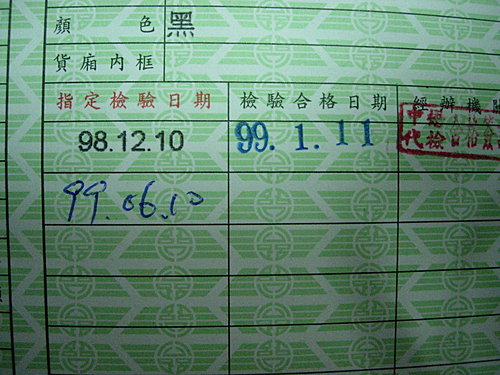 顏色 黑
貨廂内框
指定檢驗日期 檢驗合格日期 經辦機關
98.12.10 99. 1. 11
99.06.10
代檢